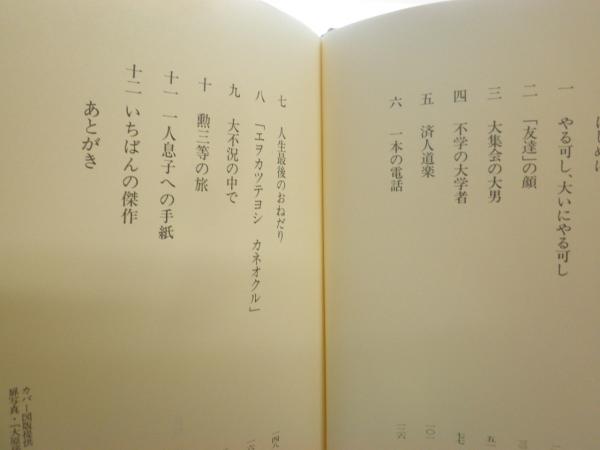 はじめに
一 やる可し、大いにやる可し
二 「友達」の顔
三 大集会の大男
四 不学の大学者 七七
五 済人道楽 一〇一
六 一本の電話 一二六
七 人生最後のおねだり 一四八
八 「エヲカツテヨシ カネオクル」
九 大不況の中で
十 勲三等の旅
十一 一人息子への手紙
十二 いちばんの傑作
あとがき
カバー図版提供
扉写真・『大原